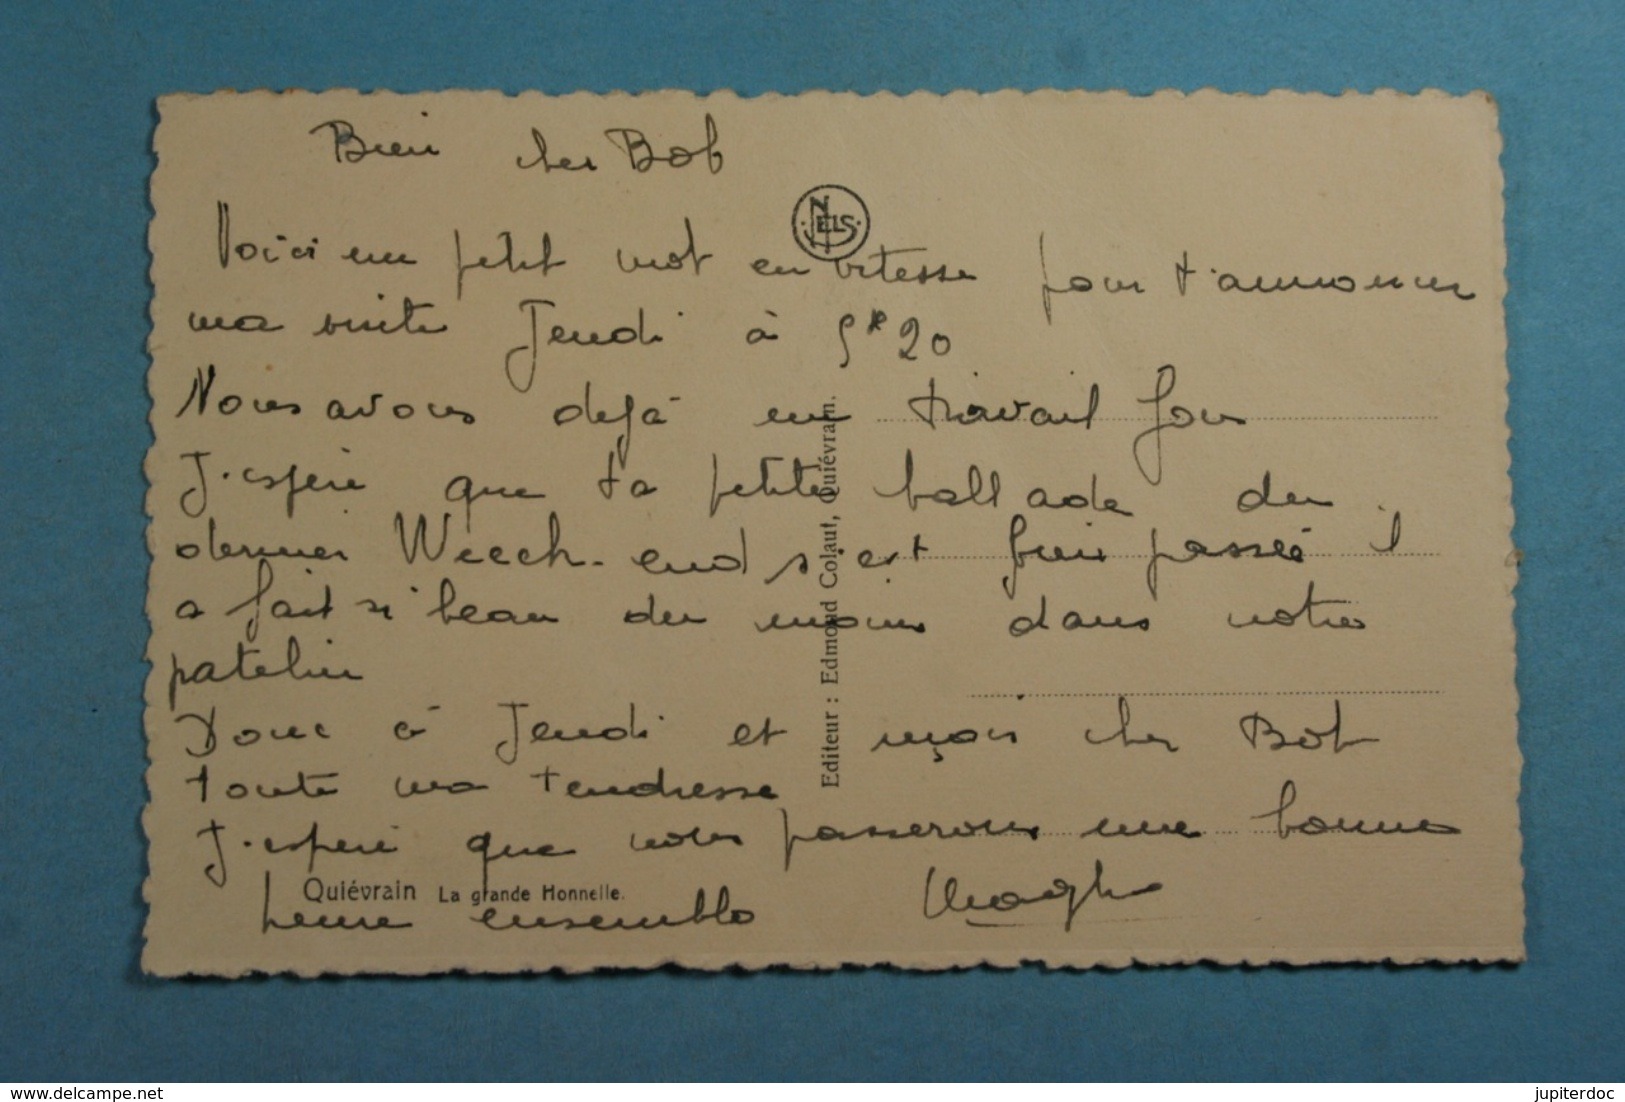 Bien cher Bob
NELS
Voici un petit mot en vitesse pour t'annoncer
ma visite Jeudi à 5h 20
Nous avons dejà un travail fou
J'espère que ta petite ballade du
dernier Weech-end s'est bien passée il
a fait si beau du moins dans notre
patelin
Donc à Jeudi et reçois cher Bob
toute ma tendresse
J'espère que nous passerons une bonne
Quiévrain La grande Honnelle.
heure ensemble
Editeur : Edmond Colaut, Quiévrain.
delcampe.net
jupiterdoc